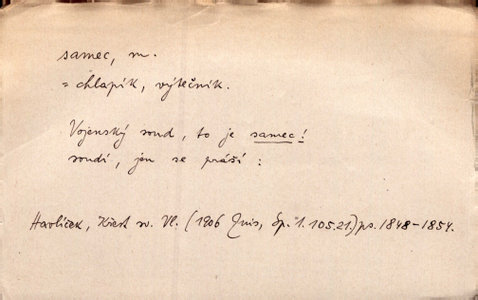 samec, m.
= chlapík, výtečník.
Vojenský soud, to je samec!
soudí, jen se práší:
Havlíček, Křest sv. Vl. (1906 Quis, Sp. 1.105.21) ps. 1848-1854.